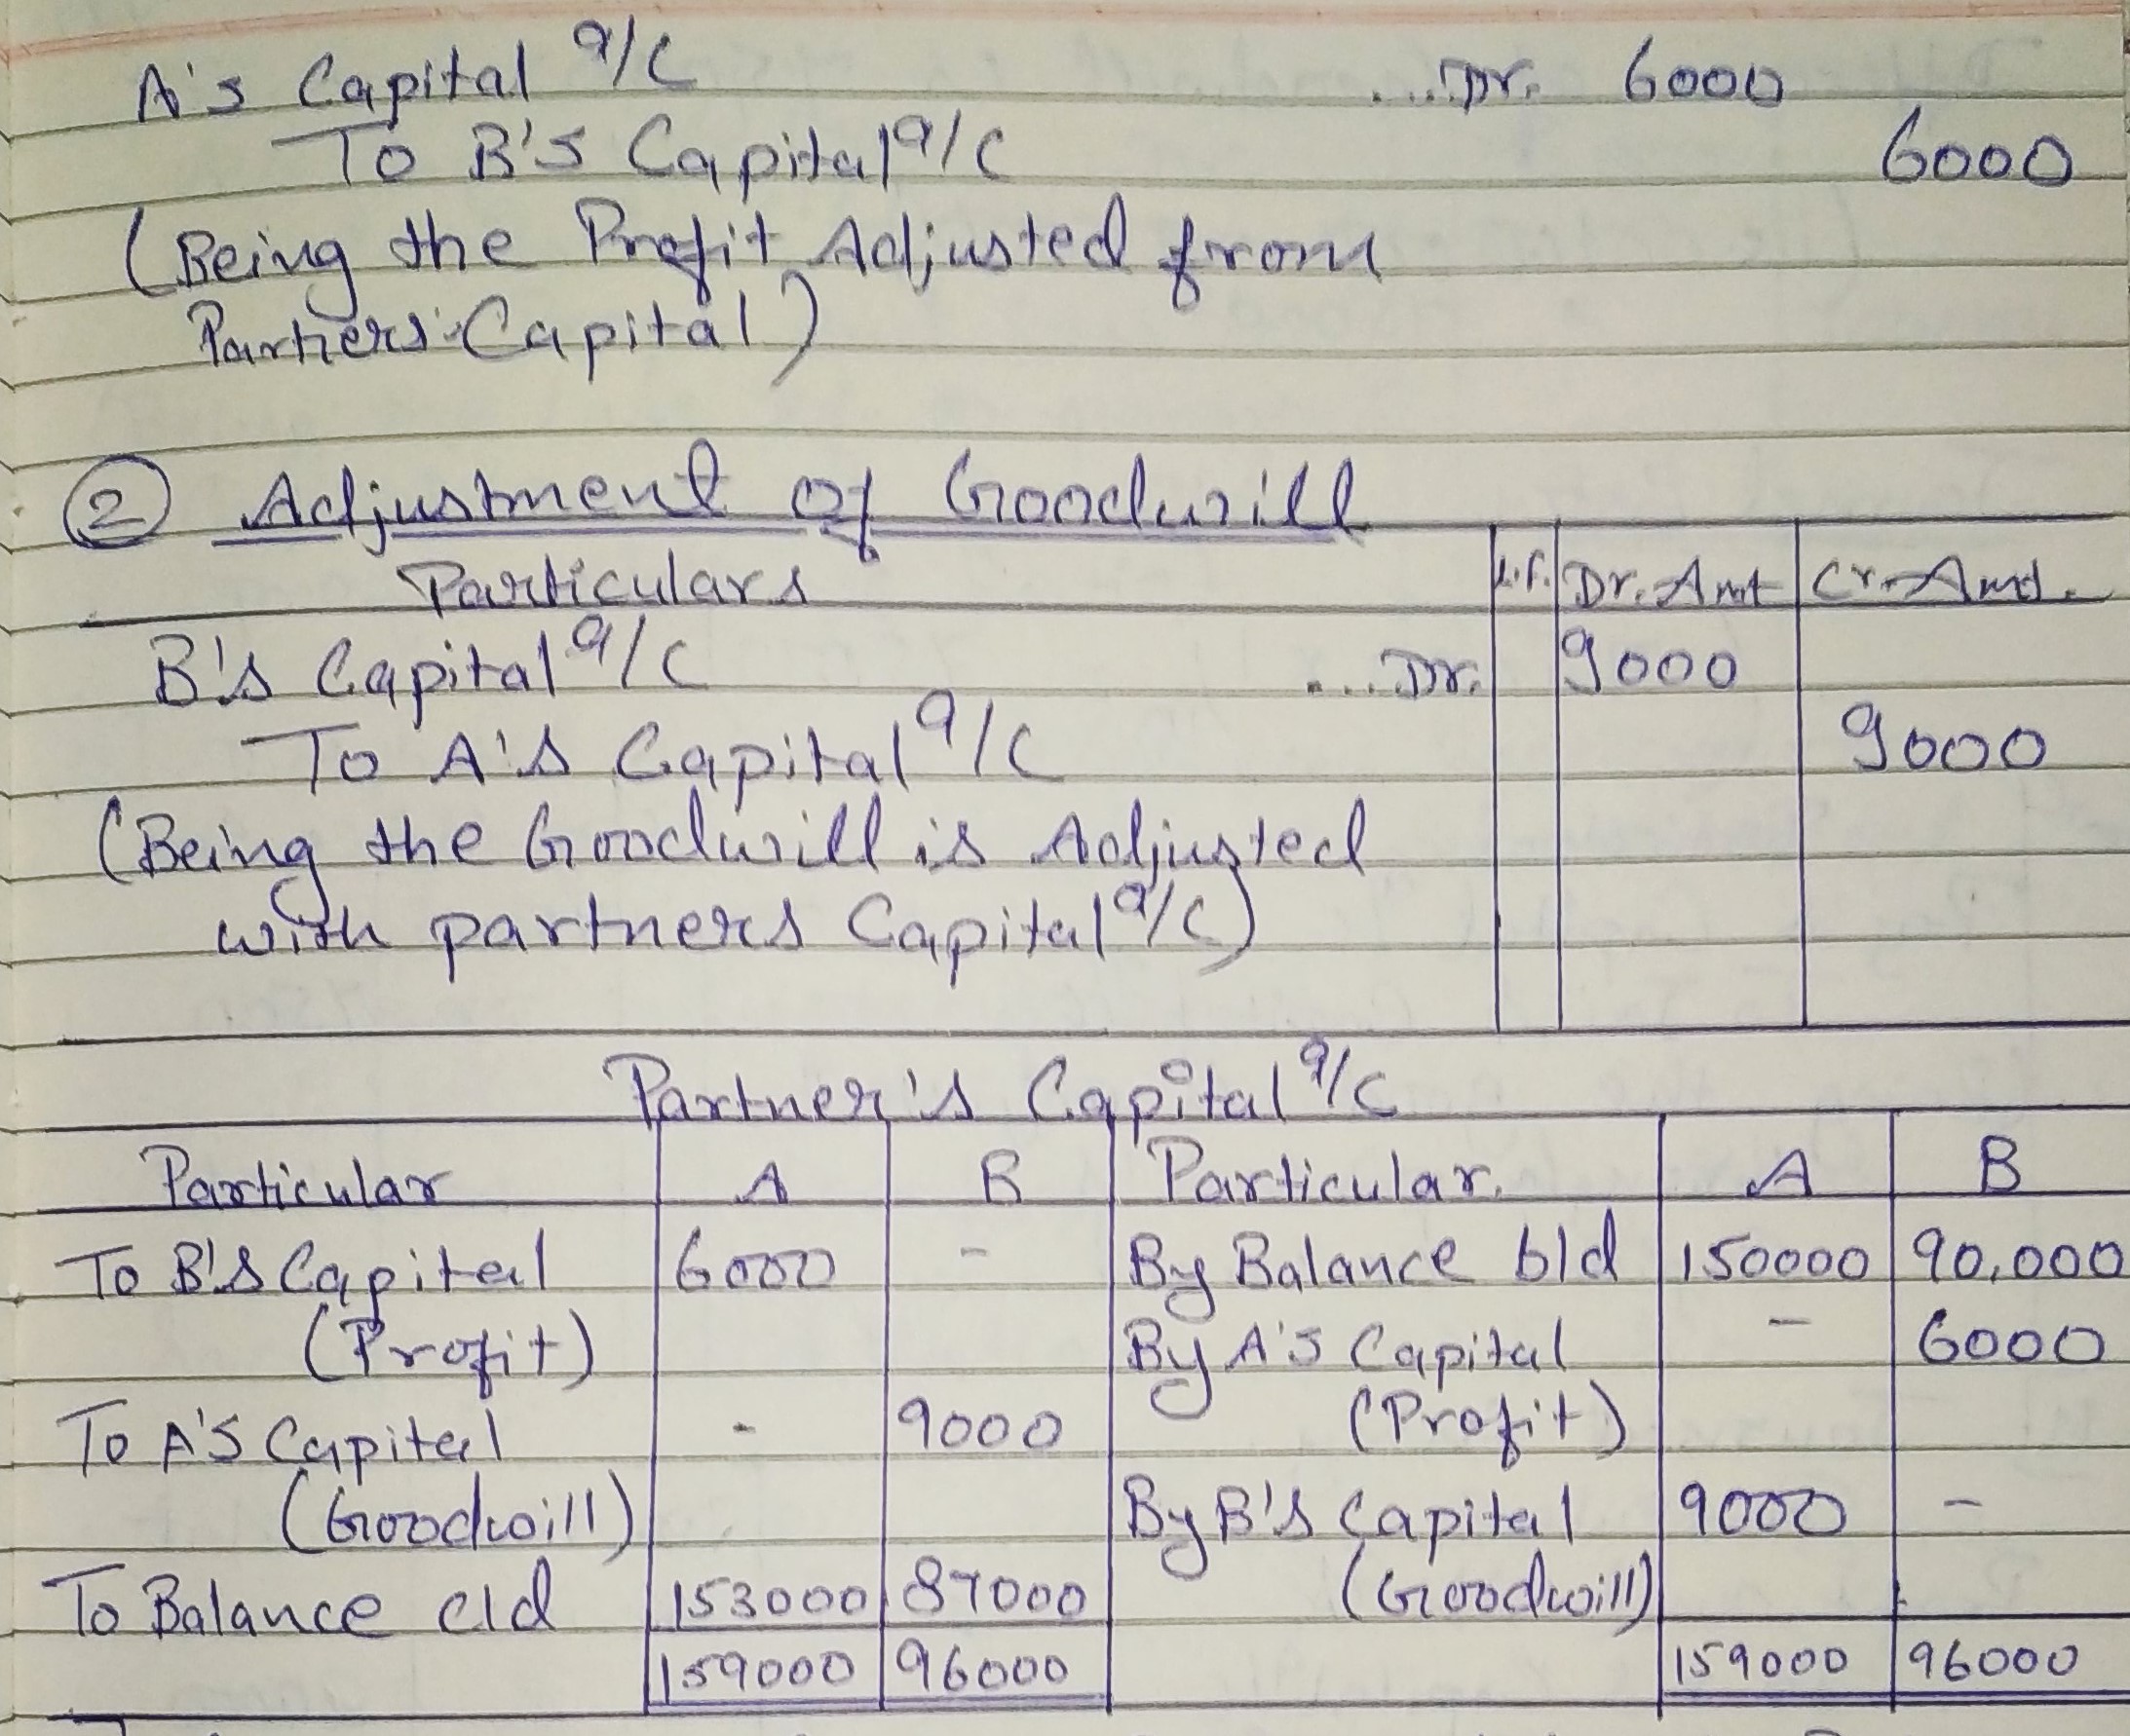 A's Capital a/c ....Dr. 6000
To B's Capital a/c 6000
(Being the Profit Adjusted from
Partners' Capital)
② Adjustment of Goodwill
Particulars L.F. Dr. Amt Cr. Amt.
B's Capital a/c ....Dr. 9000
To A's Capital a/c 9000
(Being the Goodwill is Adjusted
with partners Capital a/c)
Partner's Capital a/c
Particular A B Particular. A B
To B's Capital 6000 - By Balance b/d 150000 90,000
(Profit) By A's Capital - 6000
To A's Capital - 9000 (Profit)
(Goodwill) By B's Capital 9000 -
To Balance c/d 153000 87000 (Goodwill)
159000 96000 159000 96000